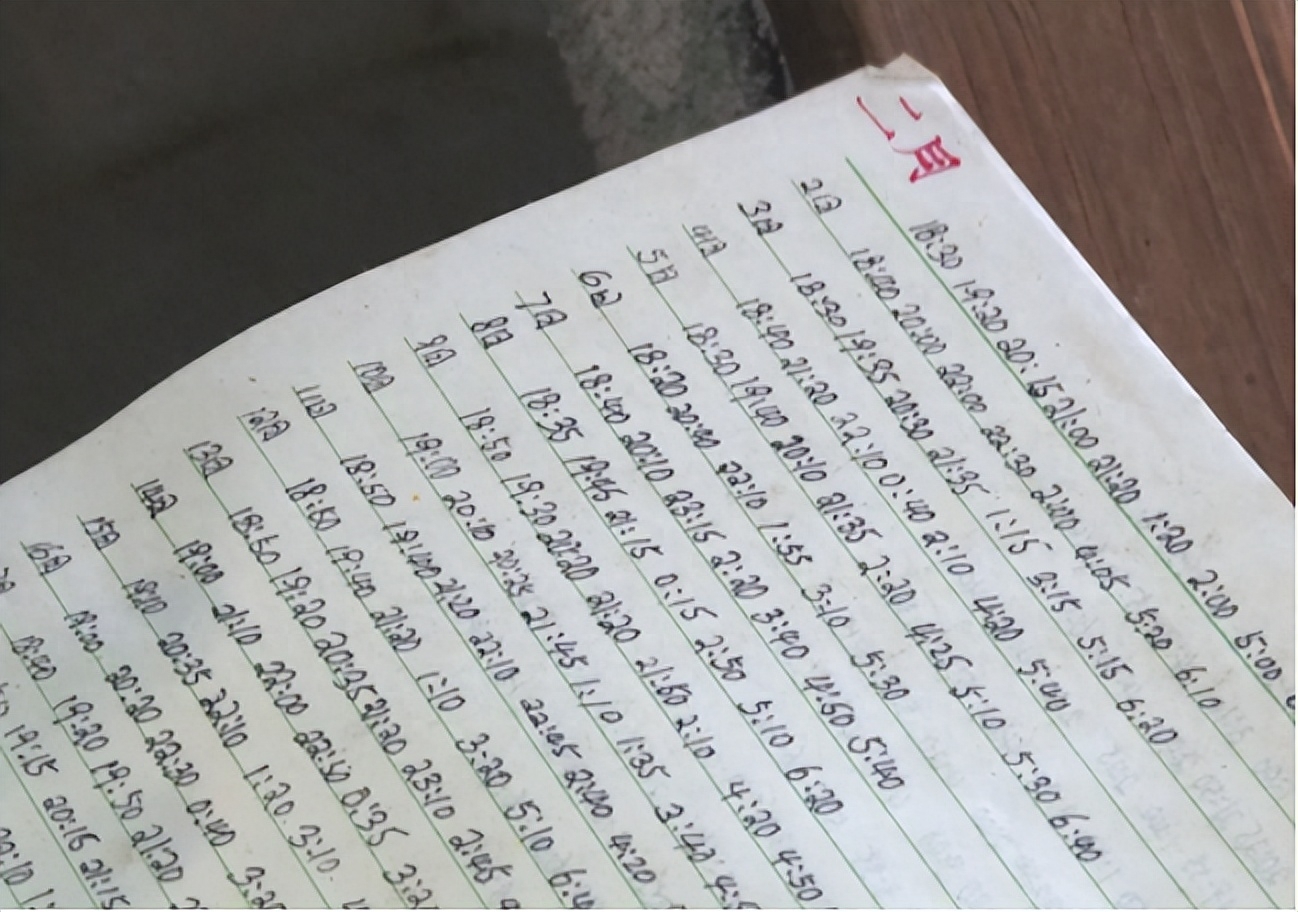 二月
18:30 19:20 20:15 21:00 21:20 1:20 2:00 5:00
2日 18:40 20:00 22:00 22:30 2:00 4:05 5:20 6:10
3日 18:30 19:35 20:30 21:35 1:15 3:15 5:15 6:20
4日 18:40 21:20 22:10 0:40 2:10 4:20 5:40
5日 18:30 19:40 20:40 21:35 2:20 4:25 5:10 5:30 6:40
6日 18:20 20:40 22:10 1:55 3:10 5:30
7日 18:40 20:10 23:15 2:20 3:40 4:50 5:40
8日 18:35 19:45 21:15 0:15 2:50 5:10 6:20
9日 18:50 19:30 20:20 21:20 21:50 2:10 4:20 4:50
10日 19:00 20:10 20:25 21:45 1:10 1:35 3:42
11日 18:50 19:40 21:20 22:10 22:45 2:40 4:20
12日 18:50 19:40 21:20 1:10 3:20 5:10
13日 18:50 19:20 20:35 21:20 23:10 2:45
14日 19:00 21:10 22:00 22:50 0:35
15日 19:10 20:35 22:10 1:20 3:10
16日 19:00 20:20 22:30 0:40 3:20
18:40 19:20 19:50 21:20
19:15 20:15 21:15